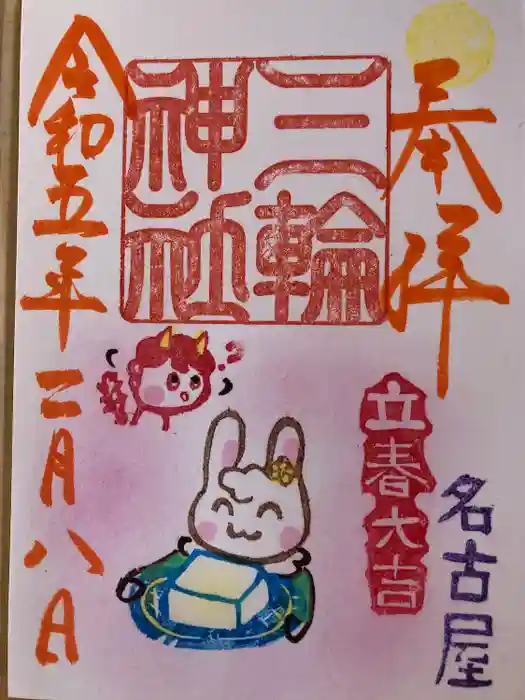 奉拝
三輪
神社
立春大吉
名古屋
令和五年二月八日
?